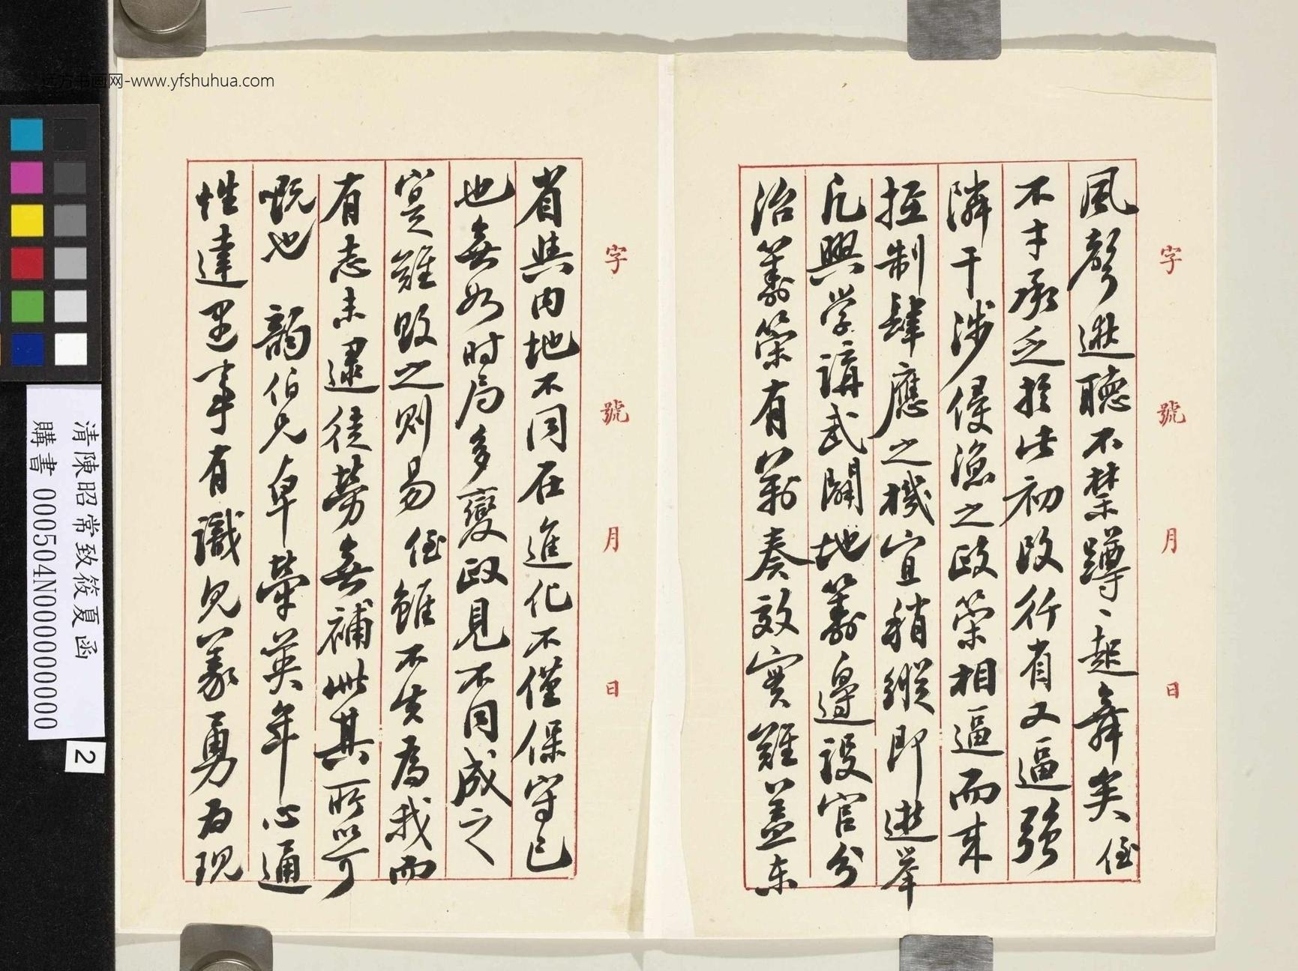 风方书画网-www.yfshuhua.com
字 號 月 日
風聲逖聽不禁蹲蹲起舞矣侄
不才承乏於此初政行省又逼強
隣干涉侵漁之政策相逼而來
控制肆應之機宜稍縱即逝舉
凡興学講武開地籌邊設官分
治籌策有萬奏效實難蓋东
字 號 月 日
省與内地不同在進化不僅保守已
也無如时局多變政見不同成之
寔難敗之则易侄雖不失為我而
有志未逮徒勞無補此其所以可
慨也 韵伯兄卓犖英年心通
性達遇事有識見義勇為現
清陳昭常致筱夏函
購書 000504N000000000
2